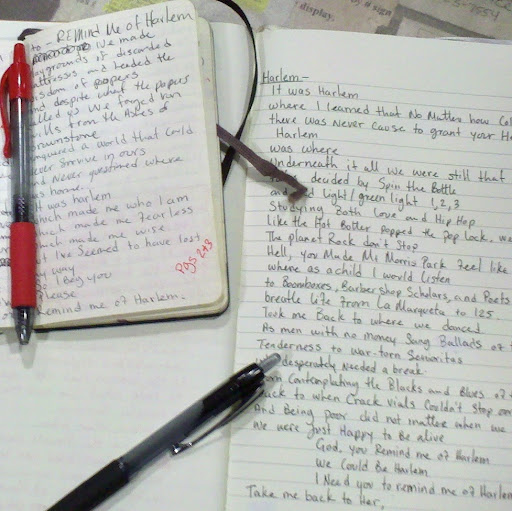 to - REMIND Me OF Harlem
We made
playgrounds of discarded
mattresses and heeded the
wisdom of papers
and despite what the papers
called us We forged van
from the Ashes of
Brownstone
conquered a world that could
Never Survive in ours
and Never questioned where
was home.
it was harlem
which made me who I am
which made me fearless
which made me wise
I've Seemed to have lost
my way
So I Beg you
Please
remind me of Harlem.
Pgs 2+3
display.
a sign
7554
Harlem -
It was Harlem
where I learned that No Matter how
there was Never cause to grant your
Harlem
was where
Underneath it all we were still that
decided by Spin the Bottle
and Red Light/green light 1,2,3
Studying Both Love and Hip Hop
Like the Hot Butter Popped the Pop Lock, we
The planet Rock don't Stop
Hell, you Made Mt Morris Park feel like
where as a child I would listen
to Boomboxes, Barber Shop Scholars, and Poets
breathe life from La Marqueta to 125
Took me Back to where we danced
As men with no money Sang Ballads of
Tenderness to war-torn Senoritas
desperately Needed a break
From Contemplating the Blacks and Blues of
Back to when Crack vials Couldn't Stop
And Being poor did not matter when we
We were Just Happy to Be alive
God, you Remind me of Harlem
We Could Be Harlem
I Need you to remind me of Harlem
Take me back to Her,